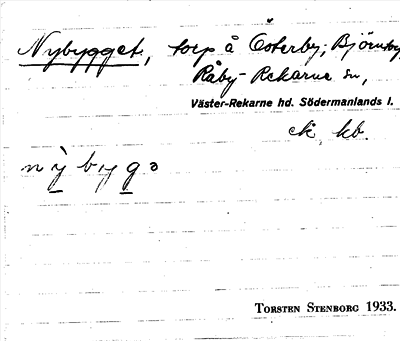 Nybygget, torp å Österby, Björnöby,
Råby-Rekarne sn,
Väster-Rekarne hd. Södermanlands l.
ek. kb.
nỳ bygə
TORSTEN STENBORG 1933.